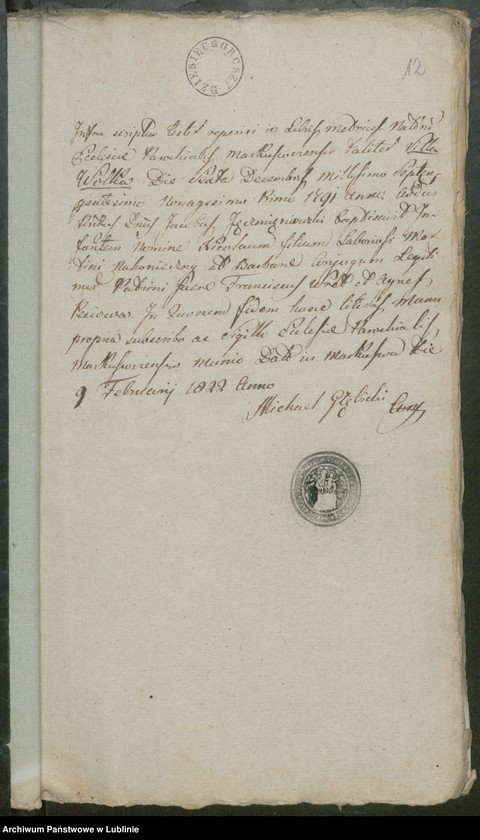 DZIESIĘC GROSZY
12
Infra scriptus testor reperiri in Libris Metrices Natorum
Ecclesiae Parochialis Markuszoviensis taliter Villa
Wolka Die Sexta Decembris Millesimo Septin
gentesimo Nonagesimo Primo 1791 Anno
Dnus Jacobus baptisavit In
fantem Nomine Nicolaum filium Laboriosi Mar
tini et Barbarae Conjugum Legiti
mor Patrini fuere Franciscus et Agnes
In quorum fidem hasce literas Manu
propria subscribo ac Sigillo Ecclesiae Parochialis
Markuszoviensis munio Dat in Markuszow Die
9 Februarij 1822 Anno
Michael Głębicki
Archiwum Państwowe w Lublinie